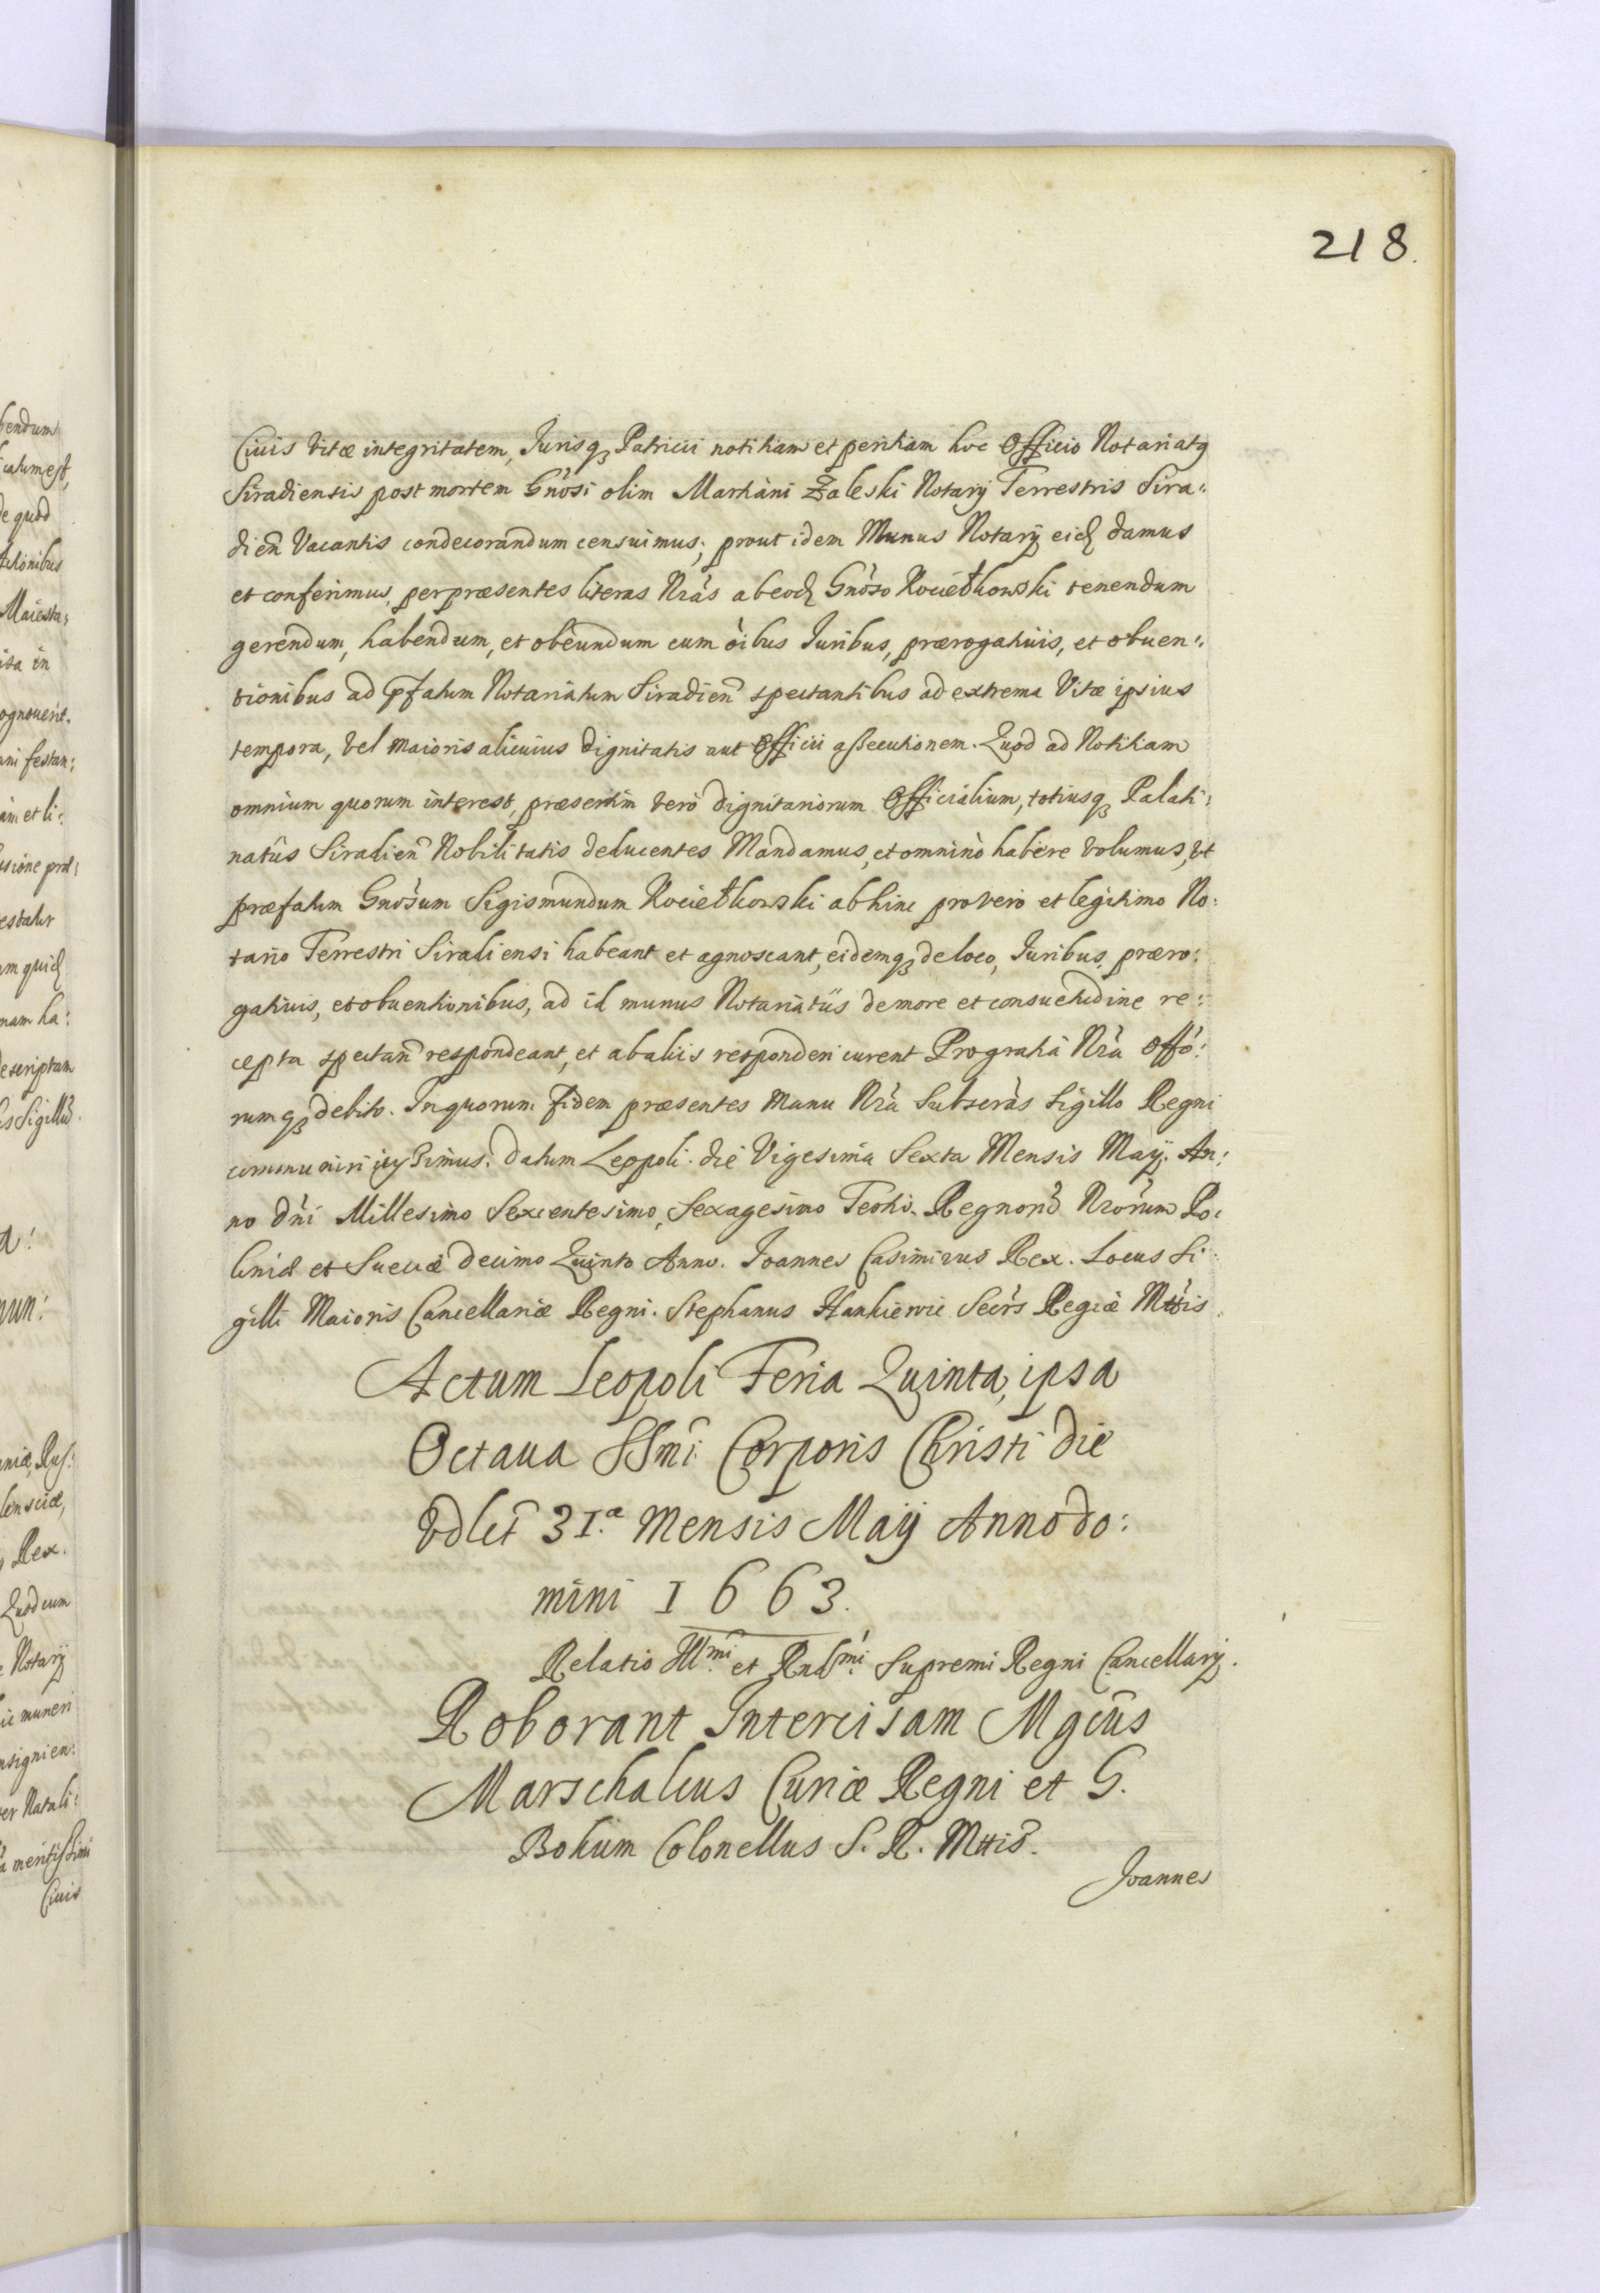 218.
Ciuis vitæ integritatem, Jurisq₃ Patricii notitiam et peritiam hoc Officio Notariatq
Siradiensis post mortem Gnosi olim Martiani Zaleski Notarÿ Terrestris Sira:
dien Vacantis condecorandum censuimus; prout idem Munus Notarÿ eid damus
et conferimus, per præsentes literas Nras ab eod Gnoso Kociełkowski tenendum
gerendum, habendum, et obeundum cum oibus Juribus, prærogatiuis, et obuen:
tionibus ad pfatum Notariatum Siradien spectantibus ad extrema Vitæ ipsius
tempora, vel maioris alicuius dignitatis aut Officii assecutionem. Quod ad Notitiam
omnium quorum interest, præsertim vero dignitariorum Officialium, totiusq₃ Palati:
natûs Siradien Nobilitatis deducentes Mandamus, et omninò habere volumus, vt
præfatum Gnosum Sigismundum Kociełkowski abhinc pro vero et legitimo No:
tario Terrestri Siradiensi habeant et agnoscant, eidemq₃ de loco, Juribus, præro:
gatiuis, et obuentionibus, ad id munus Notariatûs de more et consuetudine re:
cepta spectan respondeant, et ab aliis responderi curent Pro gratia Nra offo:
rumq₃ debito. In quorum fidem præsentes manu Nra Subscras Sigillo Regni
communiri iussimus. Datum Leopoli. die Vigesima Sexta Mensis Maÿ. An:
no Dni Millesimo Sexcentesimo, Sexagesimo Tertio. Regnorũ Nrorum Po:
loniæ et Sueciæ decimo Quinto Anno. Joannes Casimirus Rex. Locus Si:
gilli Maioris Cancellariæ Regni. Stephanus Hankiewic Secrs Regiæ Mttis.
Actum Leopoli Feria Quinta, ipsa
Octaua SSmi Corporis Christi die
vdlct 31.a Mensis Maÿ Anno do:
mini 1663.
Relatio Illmi et Rndmi Supremi Regni Cancellarÿ.
Roborant Intercisam Mgcus
Marschalcus Curiæ Regni et G.
Bokum Colonellus S. R. Mttis.
Joannes